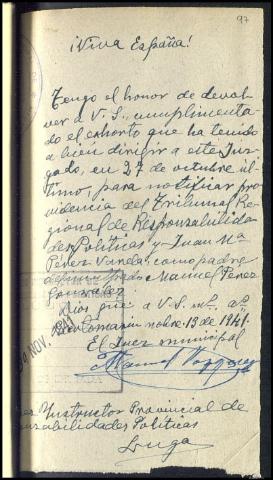 97
¡Viva España!
Tengo el honor de devol-
ver a V. S., cumplimenta-
do el exhorto que ha tenido
a bien dirigir a este Juz-
gado, en 27 de octubre úl-
timo, para notificar pro-
videncia del Tribunal Re-
gional de Responsabilida-
des Políticas y Juan Mª
Pérez Varela, como padre
del Manuel Pérez
González
Dios gue a V. S. ms. as.
nobre 13 de 1941.
El Juez municipal
Manuel
NOV. 1941
Instructor Provincial de
Responsabilidades Políticas
Lugo